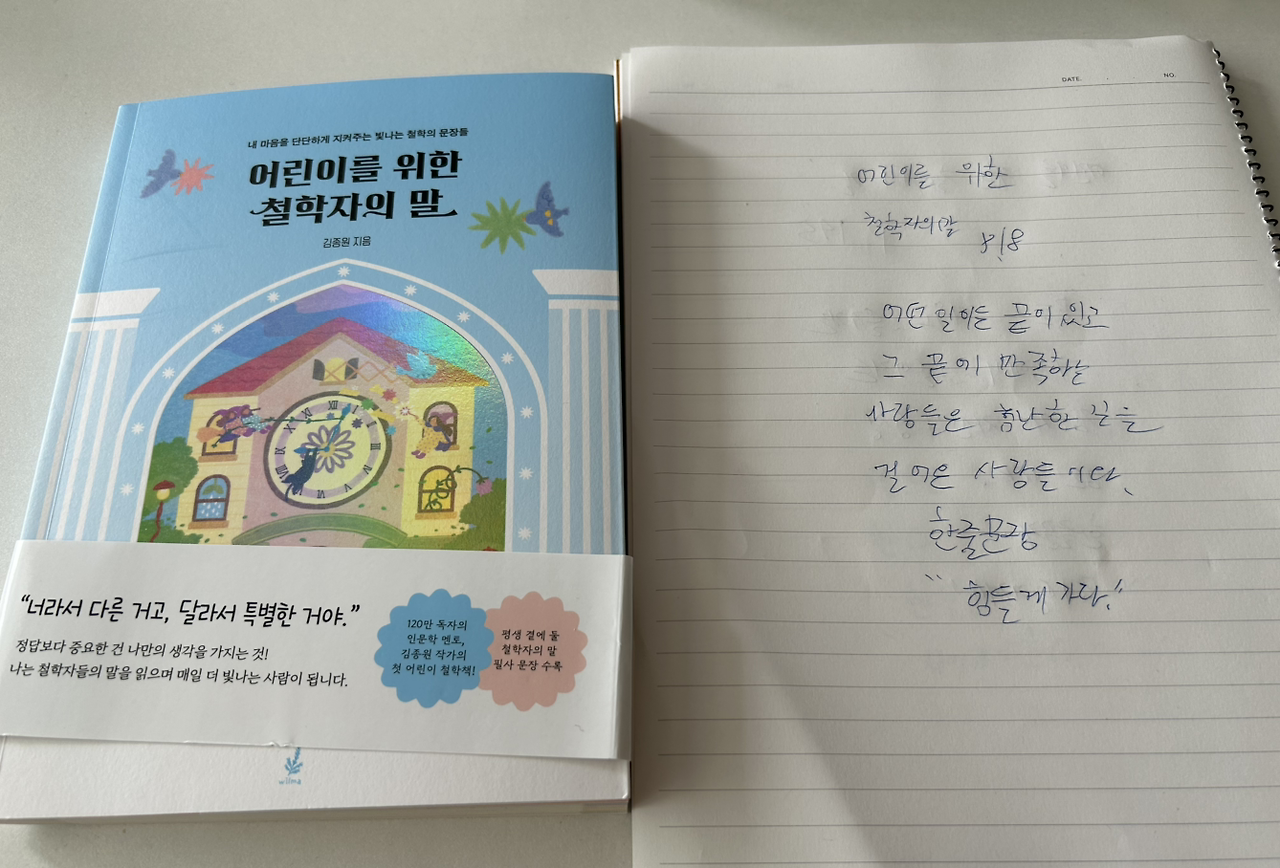 내 마음을 단단하게 지켜주는 빛나는 철학의 문장들
어린이를 위한
철학자의 말
김종원 지음
XII
I
II
III
IV
V
VI
VII
VIII
IX
X
XI
“너라서 다른 거고, 달라서 특별한 거야.”
정답보다 중요한 건 나만의 생각을 가지는 것!
나는 철학자들의 말을 읽으며 매일 더 빛나는 사람이 됩니다.
120만 독자의
인문학 멘토,
김종원 작가의
첫 어린이 철학책!
평생 곁에 둘
철학자의 말
필사 문장 수록
willma
DATE.
NO.
어린이를 위한
철학자의 말
어떤 일이든 끝이 있고
그 끝에 만족하는
사람들은 험난한 길을
걸어온 사람들이다.
한줄문장
“힘들게 가다.”